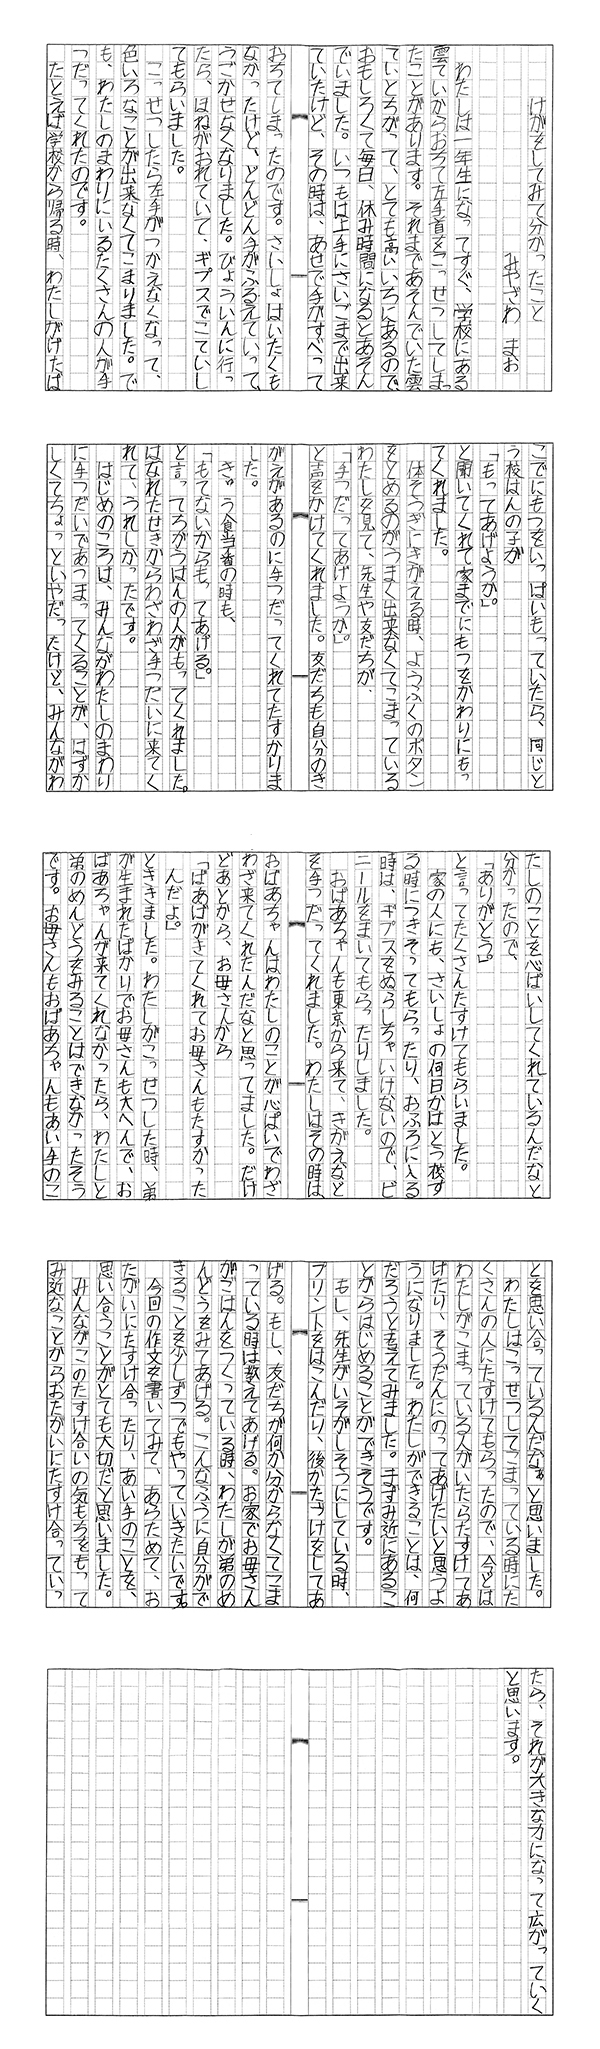 けがをしてみて分かったこと
みやざわ　まお
わたしは一年生になってすぐ、学校にある
雲ていからおちて左手首をこっせつしてしまっ
たことがあります。それまであそんでいた雲
ていとちがって、とても高いいちにあるので、
おもしろくて毎日、休み時間になるとあそん
でいました。いつもは上手にさいごまで出来
ていたけど、その時は、あせで手がすべって
おちてしまったのです。さいしょはいたくも
なかったけど、どんどん手がふるえていって、
うごかせなくなりました。びょういんに行っ
たら、ほねがおれていて、ギプスでこていし
てもらいました。
こっせつしたら左手がつかえなくなって、
色いろなことが出来なくてこまりました。で
も、わたしのまわりにいるたくさんの人が手
つだってくれたのです。
たとえば学校から帰る時、わたしがけたば
こでにもつをいっぱいもっていたら、同じと
う校はんの子が
「もってあげようか」
と聞いてくれて家までにもつをかわりにもっ
てくれました。
体そうぎにきがえる時、ようふくのボタン
をとめるのがうまく出来なくてこまっている
わたしを見て、先生や友だちが、
「手つだってあげようか」
と声をかけてくれました。友だちも自分のき
がえがあるのに手つだってくれてたすかりま
した。
きゅう食当番の時も、
「もてないからもってあげる。」
と言ってちがうはんの人がもってくれました。
はなれたせきからわざわざ手つだいに来てく
れて、うれしかったです。
はじめのころは、みんながわたしのまわり
に手つだいであつまってくることが、はずか
しくてちょっといやだったけど、みんながわ
たしのことを心ぱいしてくれているんだなと
分かったので、
「ありがとう」
と言ってたくさんたすけてもらいました。
家の人にも、さいしょの何日かはとう校す
る時につきそってもらったり、おふろに入る
時は、ギプスをぬらしちゃいけないので、ビ
ニールをまいてもらったりしました。
おばあちゃんも東京から来て、きがえなど
を手つだってくれました。わたしはその時は、
おばあちゃんはわたしのことが心ぱいでわざ
わざ来てくれたんだなと思ってました。だけ
どあとから、お母さんから
「ばあばがきてくれてお母さんもたすかった
んだよ」
とききました。わたしがこっせつした時、弟
が生まれたばかりでお母さんも大へんで、お
ばあちゃんが来てくれなかったら、わたしと
弟のめんどうをみることはできなかったそう
です。お母さんもおばあちゃんもあい手のこ
とを思い合っているんだなあと思いました。
わたしはこっせつしてこまっている時にた
くさんの人にたすけてもらったので、今どは
わたしがこまっている人がいたらたすけてあ
げたり、そうだんにのってあげたいと思うよ
うになりました。わたしができることは、何
だろうと考えてみました。まずみ近にあるこ
とからはじめることができそうです。
もし、先生がいそがしそうにしている時、
プリントをはこんだり、後かたづけをしてあ
げる。もし、友だちが何か分からなくてこま
っている時は教えてあげる。お家でお母さん
がごはんをつくっている時、わたしが弟のめ
んどうをみてあげる。こんなふうに自分がで
きることを少しずつでもやっていきたいです。
今回の作文を書いてみて、あらためて、お
たがいにたすけ合ったり、あい手のことを、
思い合うことがとても大切だと思いました。
みんながこのたすけ合いの気もちをもって
み近なことからおたがいにたすけ合っていっ
たら、それが大きな力になって広がっていく
と思います。